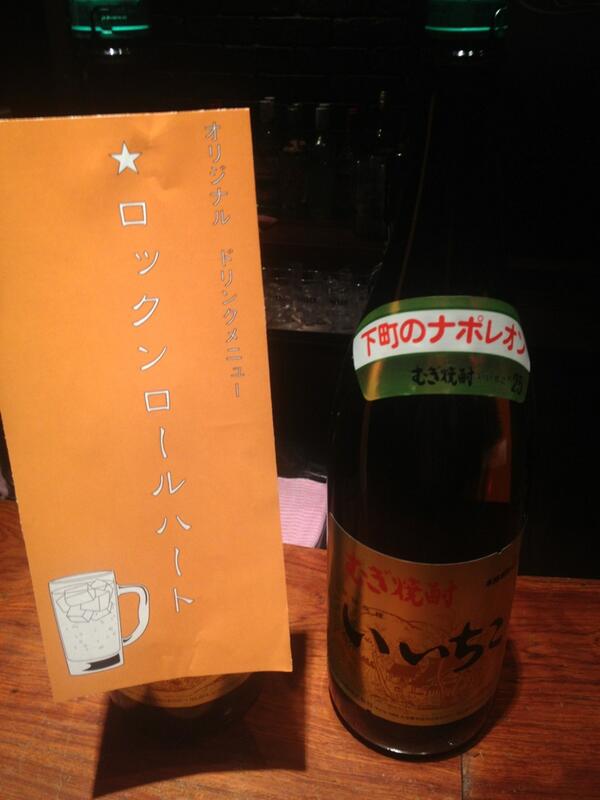 オリジナル ドリンクメニュー
★ロックンロールハート
下町のナポレオン
むぎ焼酎 いいちこ 25
むぎ焼酎
いいちこ